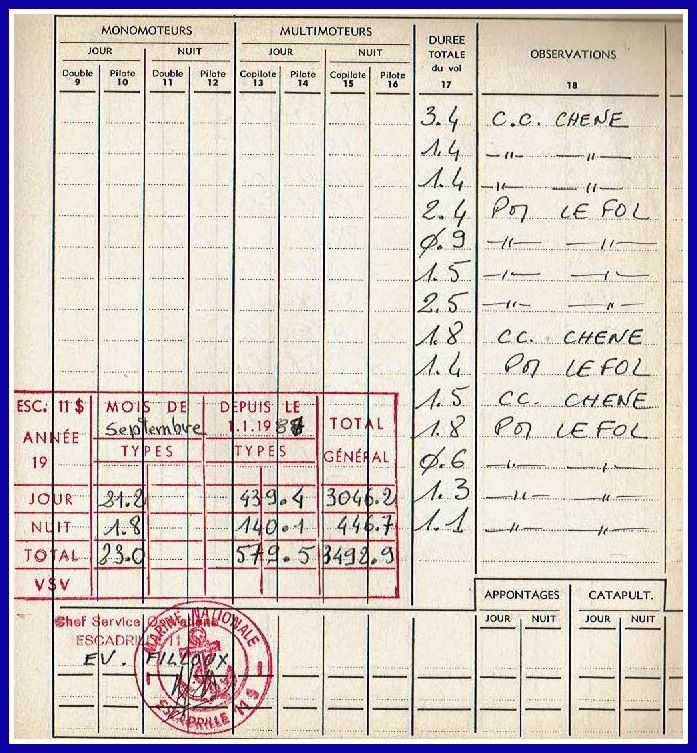 MONOMOTEURS MULTIMOTEURS DUREE TOTALE du vol OBSERVATIONS
JOUR NUIT JOUR NUIT
Double 9 Pilote 10 Double 11 Pilote 12 Copilote 13 Pilote 14 Copilote 15 Pilote 16 17 18
3.4 C.C. CHENE
1.4 -"- -"-
1.4 -"- -"-
2.4 POM LE FOL
Ø.9 -"- -"-
1.5 -"- -"-
2.5 -"- -"-
1.8 CC. CHENE
1.4 POM LE FOL
1.5 CC. CHENE
1.8 POM LE FOL
Ø.6 -"- -"-
1.3 -"- -"-
1.1 -"- -"-
ESC. 11 S MOIS DE DEPUIS LE TOTAL GÉNÉRAL
septembre 1.1.1987
ANNÉE 19 TYPES TYPES
JOUR 21.2 439.4 3046.2
NUIT 1.8 140.1 446.7
TOTAL 23.0 579.5 3492.9
VSV
APPONTAGES CATAPULT.
JOUR NUIT JOUR NUIT
Chef Service Opérations
ESCADRILLE 11 S
EV. FILLOUX
MARINE NATIONALE
ESCADRILLE 11 S